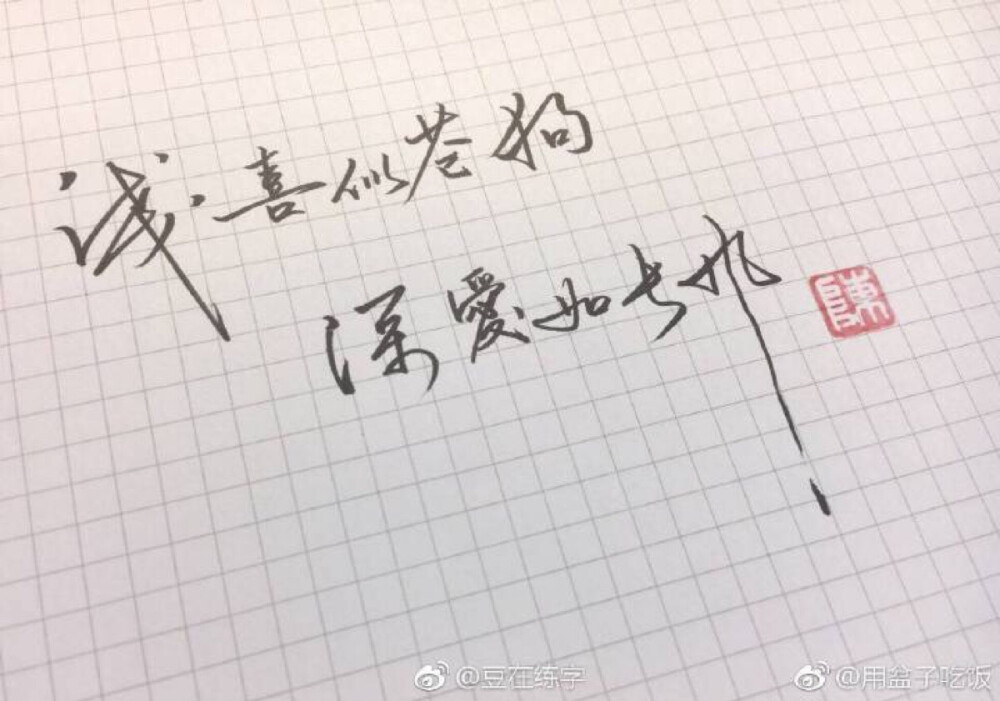 浅喜似苍狗
深愛如长风
@豆在练字
@用盆子吃饭